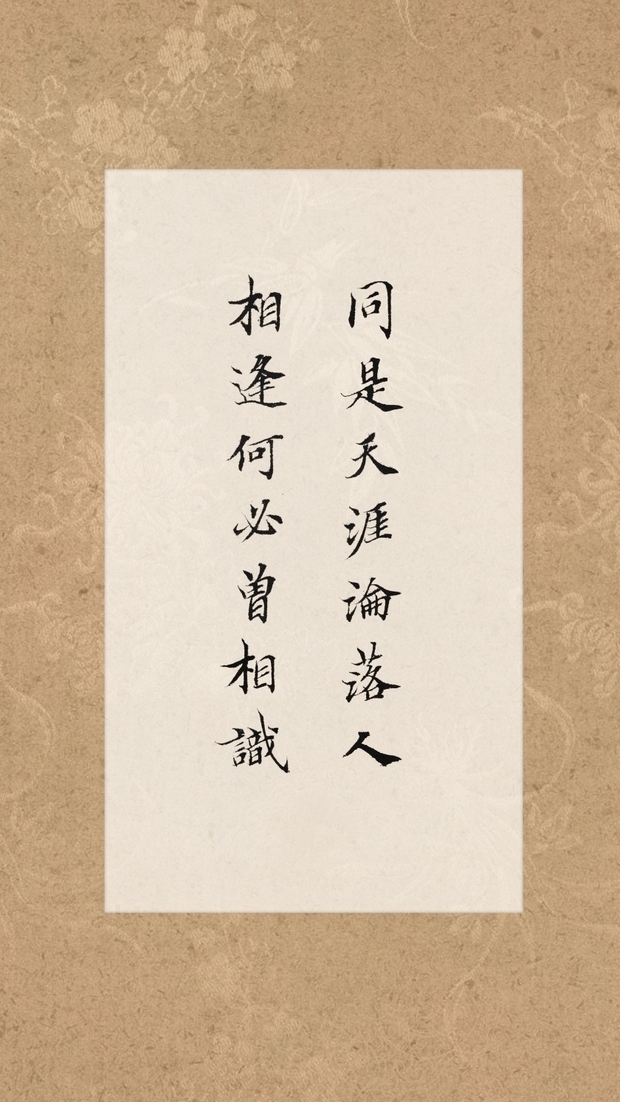 同是天涯淪落人
相逢何必曾相識